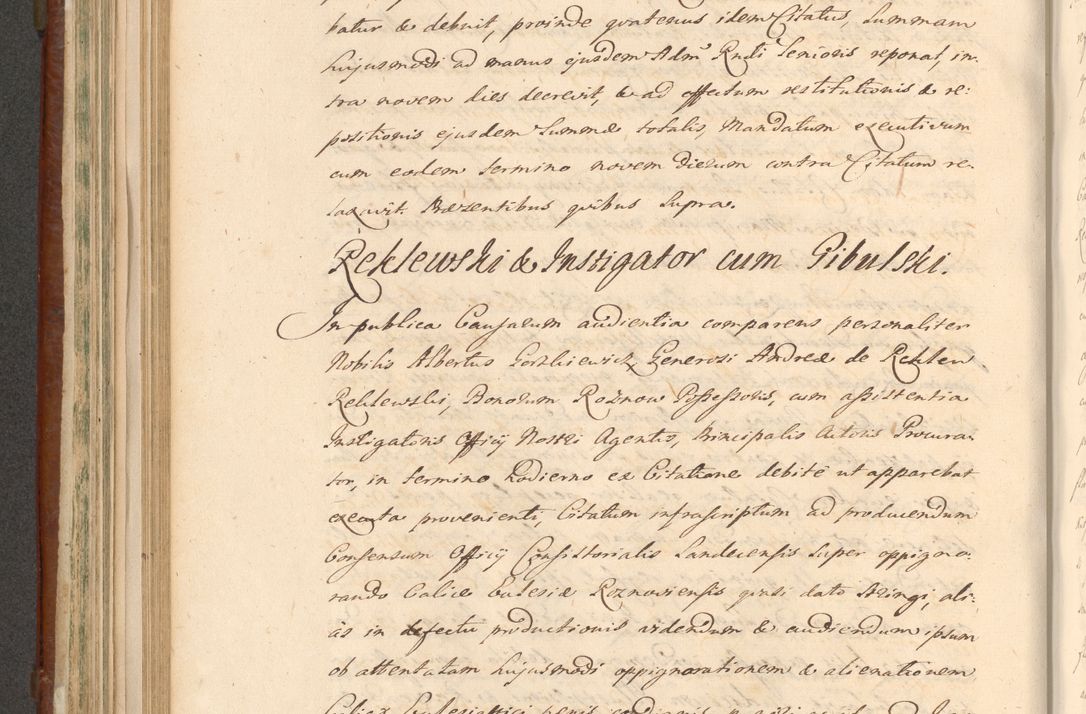 batur & debuit, proinde quatenus idem Citatus, Summam
hujusmodi ad manus ejusdem Admr̃ Rndi Senioris reponat, in-
tra novem dies decrevit, & ad effectum restitutionis & re:
positionis ejusdem Summæ totalis, Mandatum executivum
cum eodem termino novem dierum contra Citatum re-
laxavit. Præsentibus quibus supra.
Reklewski & Instigator cum Gibulski.
In publica Causarum audientia comparens personaliter
Nobilis Albertus Gorzkiewicz, Generosi Andreæ de Reklew
Reklewski, Bonorum Rożnow Possessoris, cum assistentia
Instigatoris Officij Nostri Agentis, Principalis Actoris Procura-
tor, in termino hodierno ex Citatione debitè ut apparebat
exequta provenienti, Citatum infrascriptum ad producendum
Consensum Officij Consistorialis Sandecensis super oppigno:
rando Calice Ecclesiæ Roznoviensis quasi dato stringi, ali:
às in defectu productionis videndum & audiendum ipsum
ob attentatam hujusmodi oppignorationem & alienationem